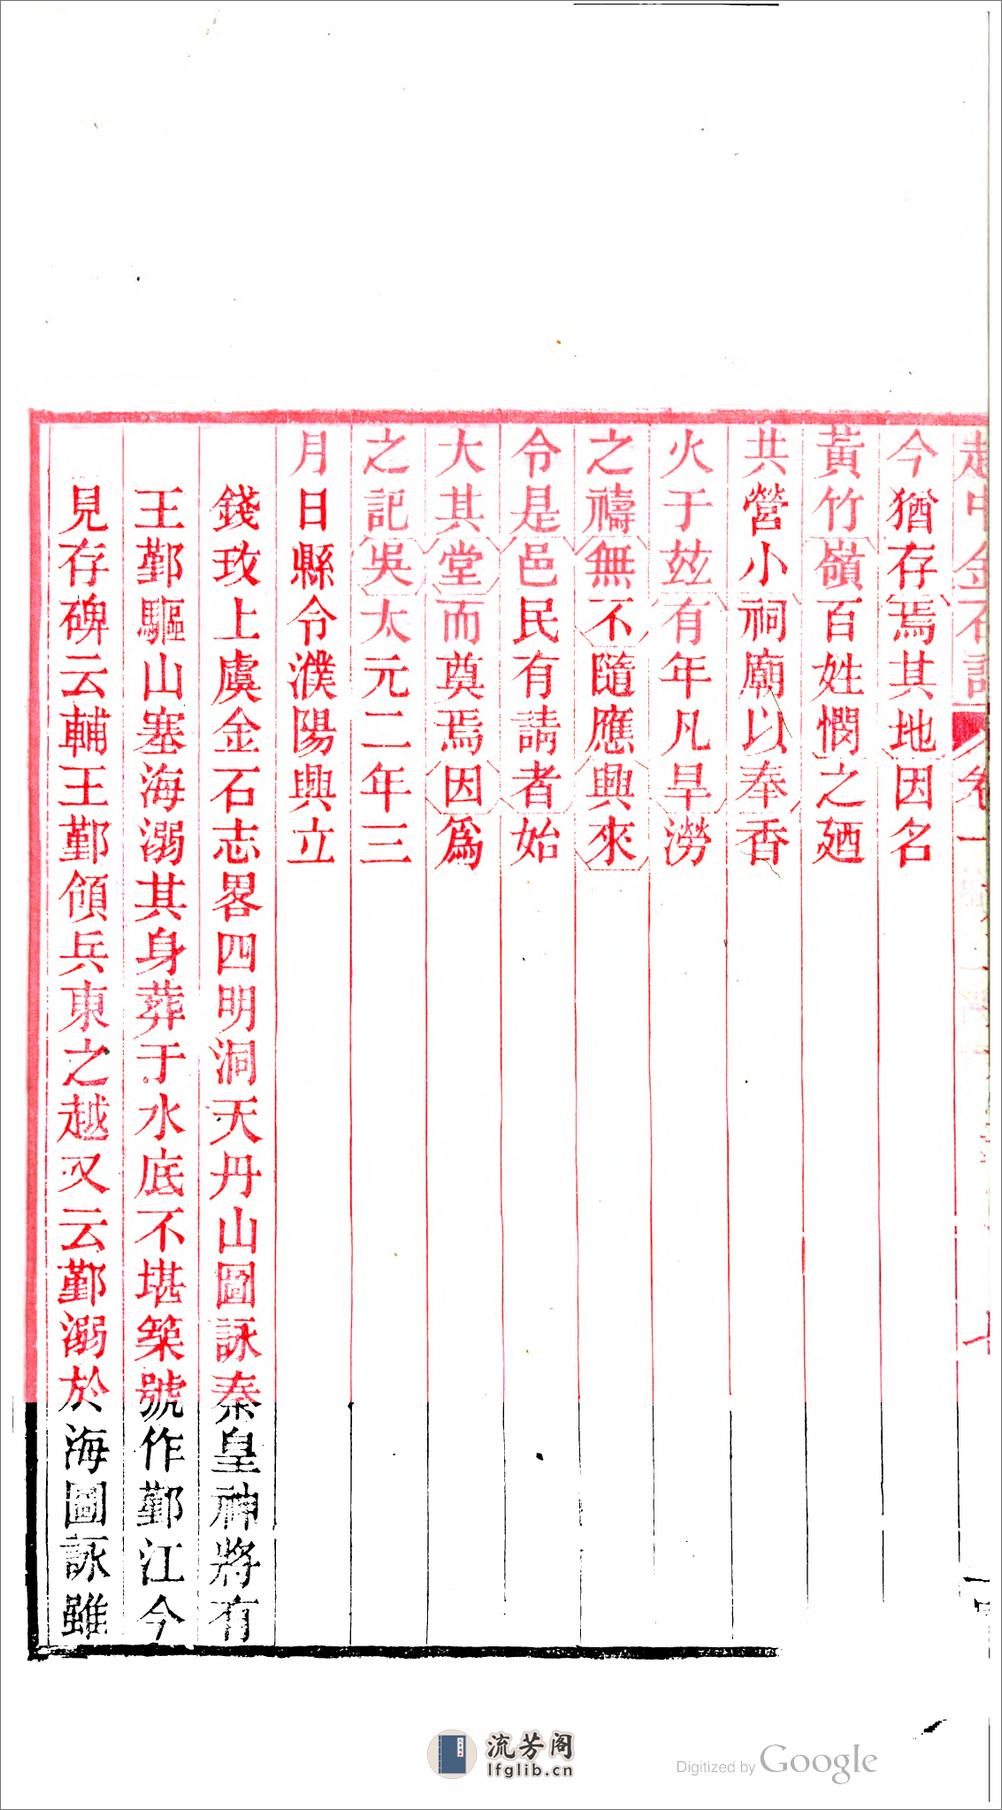 越中金石記 卷一
今猶存焉其地因名
黃竹嶺百姓憫之廼
共營小祠廟以奉香
火于玆有年凡旱澇
之禱無不隨應興來
令是邑民有請者始
大其堂而奠焉因爲
之記吳太元二年三
月日縣令濮陽興立
錢玫上虞金石志畧四明洞天丹山圖詠秦皇神將有
王鄞驅山塞海溺其身葬于水底不堪築號作鄞江今
見存碑云輔王鄞領兵東之越又云鄞溺於海圖詠雖
流芳阁
lfglib.cn
Digitized by Google